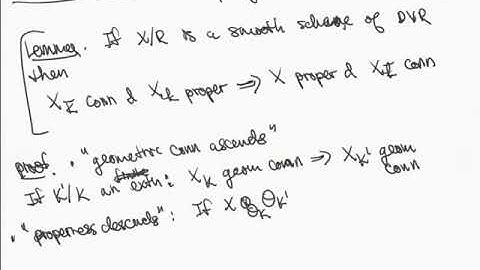 Lemma. If X/R is a smooth scheme of DVR
then
X_k̄ conn & X_k proper ⟹ X proper & X_K̄ conn
proof. • "geometric conn ascends"
If K'/K an extn: X_K geom conn ⟹ X_K' geom
conn
• "properness descends": If X ⊗_{O_K} O_K'